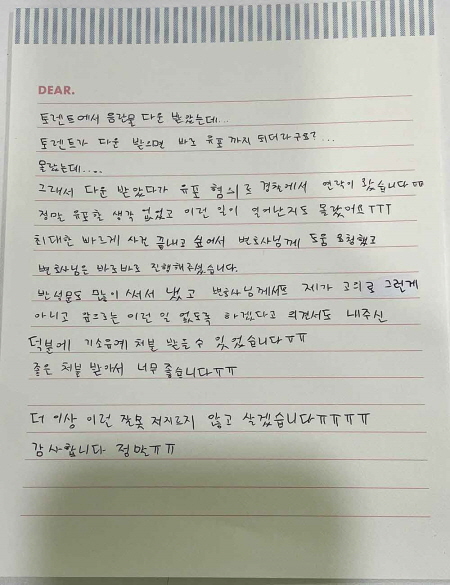 DEAR.
토렌트에서 음란물 다운 받았는데...
토렌트가 다운 받으면 바로 유포 까지 되더라구요?...
몰랐는데.....
그래서 다운 받았다가 유포 혐의로 경찰에서 연락이 왔습니다ㅠㅠ
정말 유포할 생각 없었고 이런 일이 일어난지도 몰랐어요TTT
최대한 빠르게 사건 끝내고 싶어서 변호사님께 도움 요청했고
변호사님은 바로바로 진행해주셨습니다.
반성문도 많이 써서 냈고 변호사님께서도 제가 고의로 그런게
아니고 앞으로는 이런 일 없도록 하겠다고 의견서도 내주신
덕분에 기소유예 처분 받을수 있었습니다ㅠㅠ
좋은 처분 받아서 너무 좋습니다ㅠㅠ
더 이상 이런 잘못 저지르지 않고 살겠습니다ㅠㅠㅠㅠ
감사합니다 정말ㅠㅠ